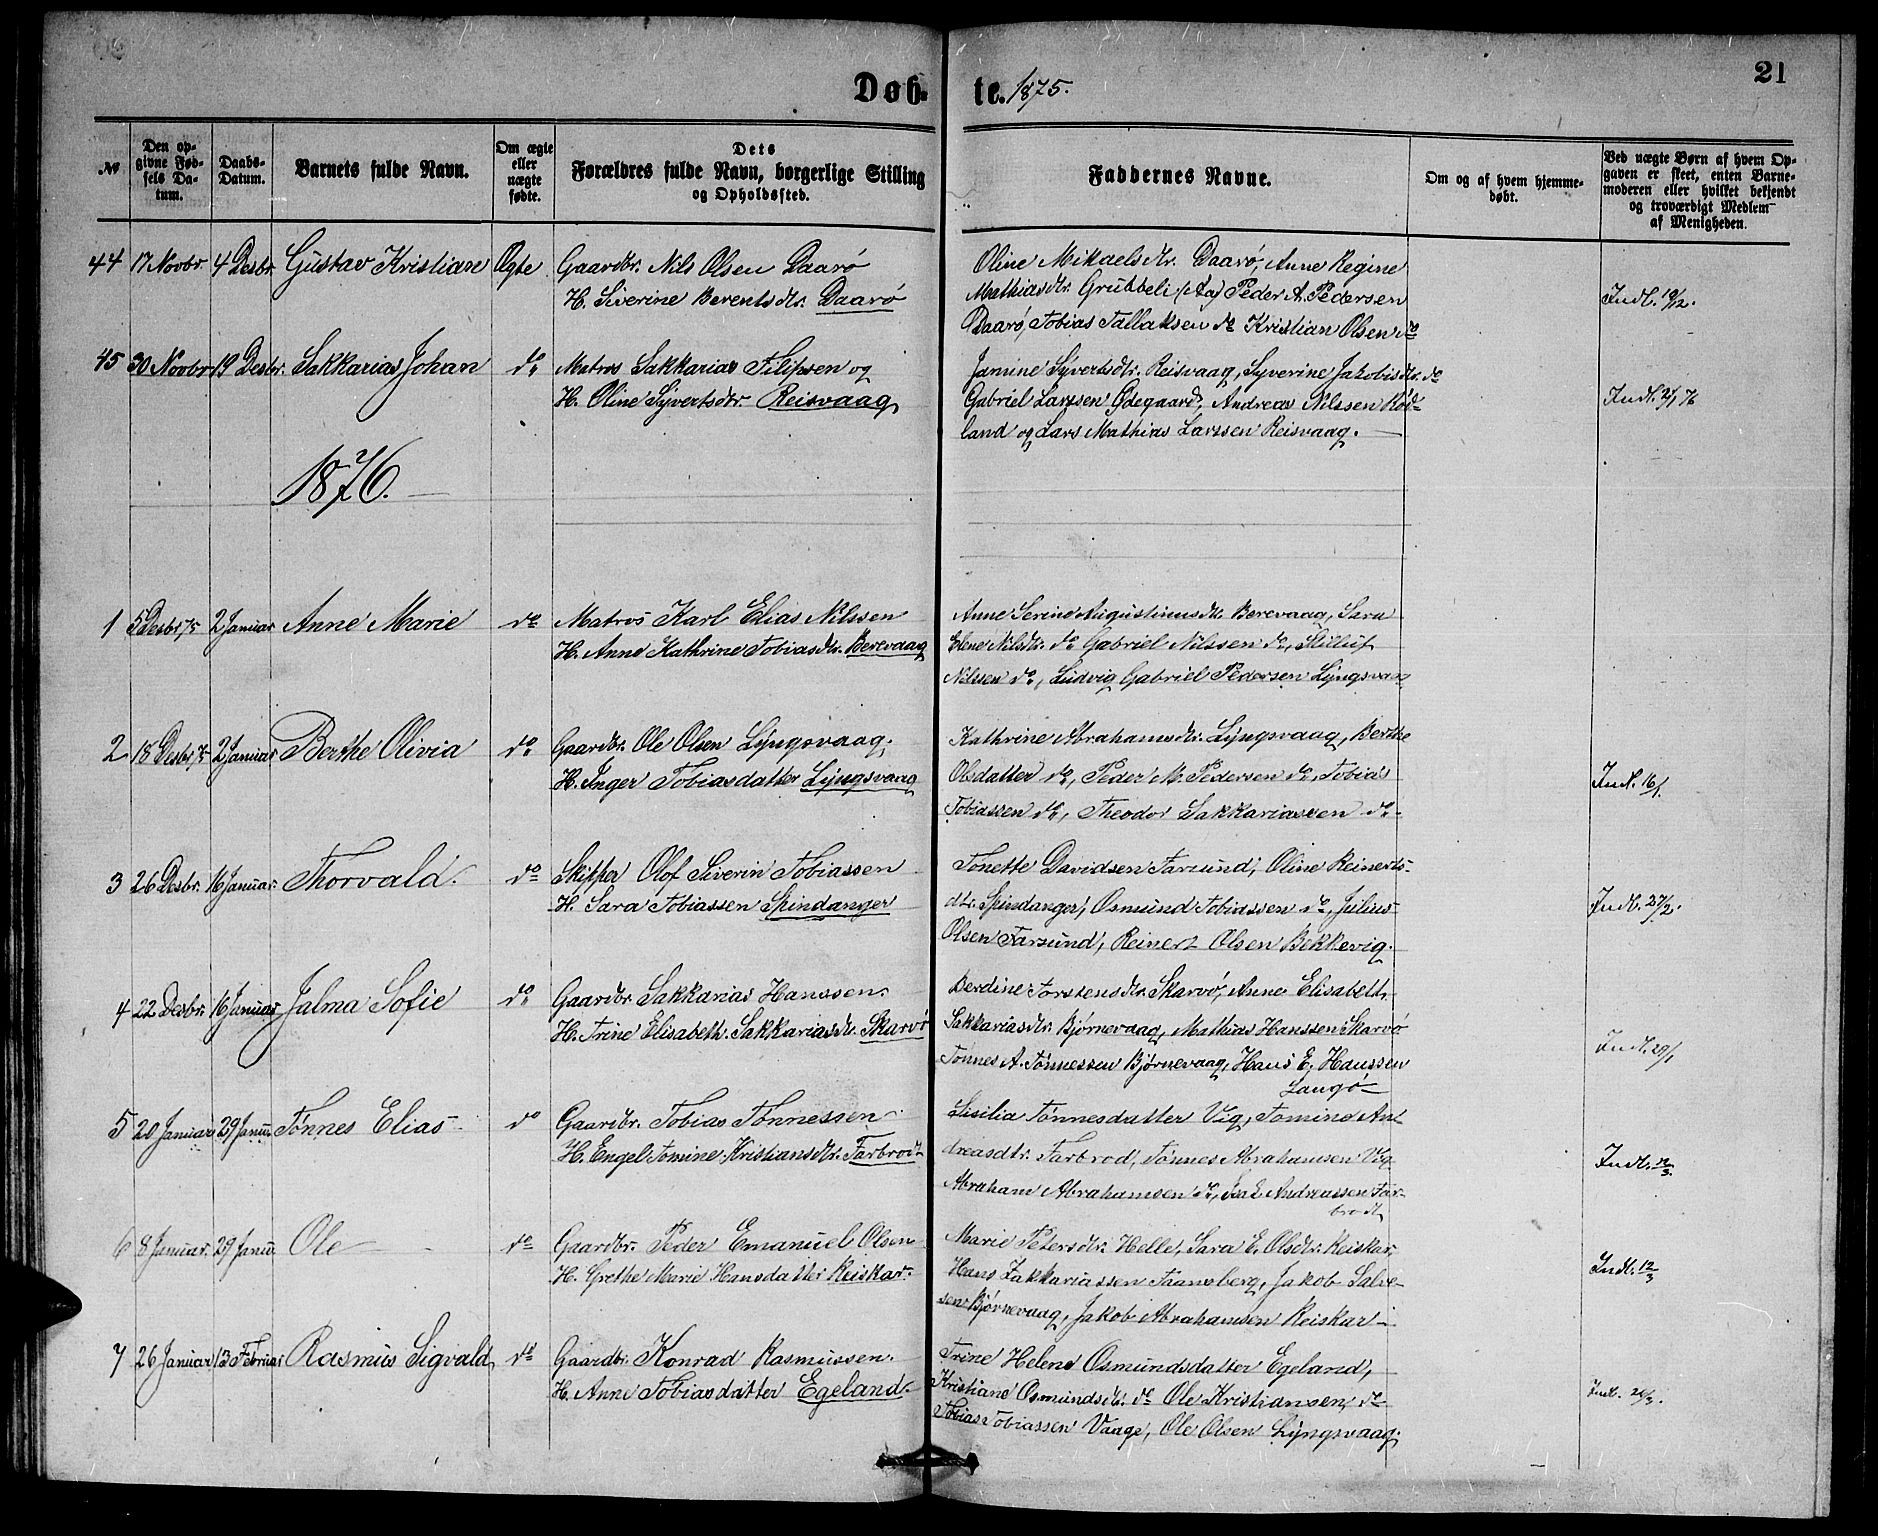 Døb- te. 1875.
21
№
Den op-
givne Fød-
sels Da-
tum.
Daabs-
Datum.
Barnets fulde Navn.
Om ægte
eller
uægte
fødte.
Dets
Forældres fulde Navn, borgerlige Stilling
og Opholdssted.
Faddernes Navne.
Om og af hvem hjemme-
døbt.
Ved uægte Børn af hvem Op-
gaven er skeet, enten Barne-
moderen eller hvilket bekjendt
og troværdigt Medlem
af Menigheden.
44 17 Novbr. 4 Desbr. Gustav Kristiane Ægte Gaardbr. Nils Olsen Daarø
H. Siverine Berentsdtr. Daarø
Oline Mikaelsdtr. Daarø, Anne Regine
Mathiasdtr. Grubbeli (Aa) Peder A. Pedersen
Daarø, Tobias Tallaksen do Kristian Olsen do
Indl. 19/12.
45 30 Novbr. 19 Desbr. Sakkarias Johan do Matros Sakkarias Filipsen og
H. Oline Syvertsdtr. Reisvaag
Jamine Syvertsdtr. Reisvaag, Syverine Jakobsdtr. do
Gabriel Larssen Ødegaard, Andreas Nilssen Rød-
land og Lars Mathias Larssen Reisvaag.
Indl. 2/1 76
1876.
1 5 Desbr 75 2 Januar Anne Marie do Matros Karl Elias Nilssen
H. Anne Kathrine Tobiasdtr. Berevaag
Anne Serine Augustinusdtr. Berevaag, Sara
Elene Nilsdtr. do Gabriel Nilssen do,
Nilssen do, Ludvig Gabriel Pedersen Lyngsvaag
2 18 Desbr 75 2 Januar Berthe Olivia do Gaardbr. Ole Olsen Lyngsvaag.
H. Inger Tobiasdatter Lyngsvaag
Kathrine Abrahamsdtr. Lyngsvaag, Berthe
Olsdatter do, Peder M. Pedersen do, Tobias
Tobiassen do, Theodor Sakkariassen do
Indl. 16/1.
3 26 Desbr. 16 Januar. Thorvald. do Skipper Olof Severin Tobiassen
H. Sara Tobiassen Spindanger
Tonette Davidsen Farsund, Oline Reinerts-
dtr. Spindanger, Osmund Tobiassen do, Julius
Olsen Farsund, Reinert Olsen Bekkevig.
Indl. 27/2.
4 22 Desbr. 16 Januar Jalma Sofie do Gaardbr Sakkarias Hanssen.
H. Trine Elisabeth Sakkariasdtr. Skarvø
Berdine Torstensdtr. Skarvø, Anne Elisabeth
Sakkariasdtr. Bjørnevaag, Mathias Hanssen Skarvø
Tønnes A. Tønnessen Bjørnevaag, Hans E. Hanssen
Langø
Indl. 29/1
5 20 Januar 29 Januar Tønnes Elias do Gaardbr. Tobias Tønnessen
H. Engel Tomine Kristiansdtr. Farbrodt
Sisilia Tønnesdatter Vig, Tomine An-
dreasdtr. Farbrod, Tønnes Abrahamsen Vig
Abraham Abrahamsen do, Andreassen Far-
brodt
Indl. 12/3.
6 8 Januar. 29 Janu. Ole do Gaardbr. Peder Emanuel Olsen
H. Grethe Marie Hansdatter Reiskar.
Marie Petersdtr. Helle, Sara E. Olsdtr. Reiskar,
Hans Zakkariassen Taansberg, Jakob Salve-
sen Bjørnevaag, Jakob Abrahamsen Reiskar
Indl. 12/3
7 26 Januar 13 Februar Rasmus Sigvald do Gaardbr. Konrad Rasmussen.
H. Anne Tobiasdatter Egeland.
Trine Helene Osmundsdatter Egeland,
Kristiane Osmundsdtr. do Ole Kristiansen, do
Tobias Tobiassen Vaage, Ole Olsen Lyngsvaag.
Indl. 26/3.